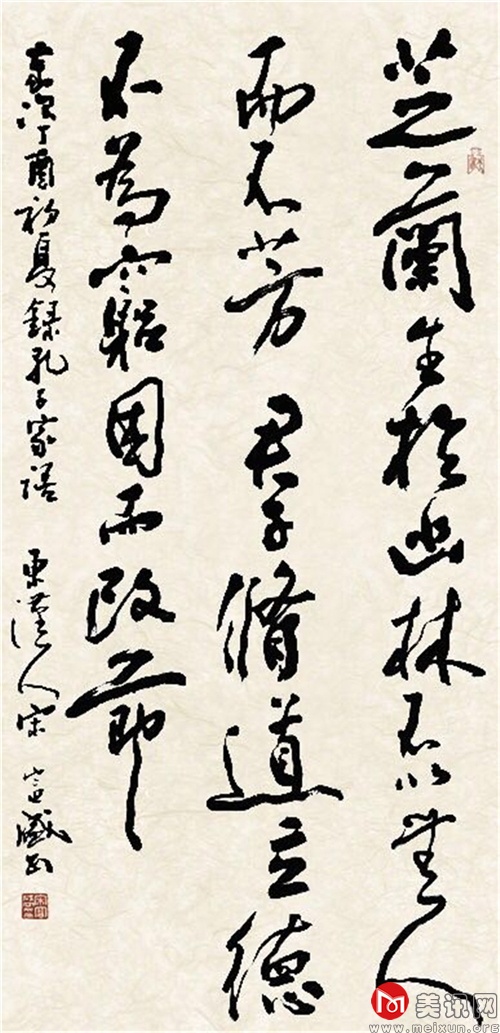 芝蘭生於幽林不以無人
而不芳 君子脩道立德
不為窮困而改節
歲次丁酉初夏録孔子家語 宋
美讯网
www.meixun.org